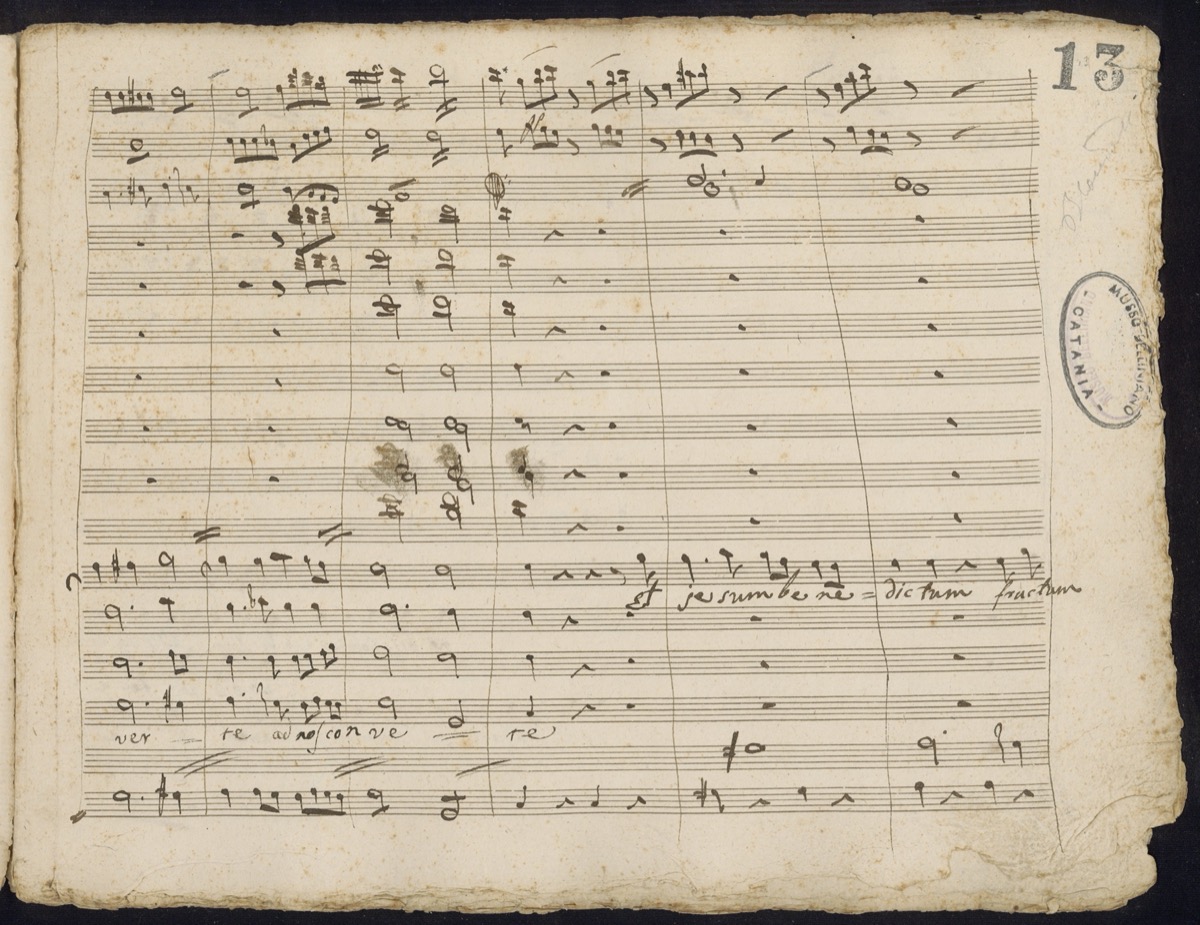 13
MUSEO BELLINIANO
- CATANIA -
et jesum be ne = dic tum fructum
ver = te ad nos con ve = te